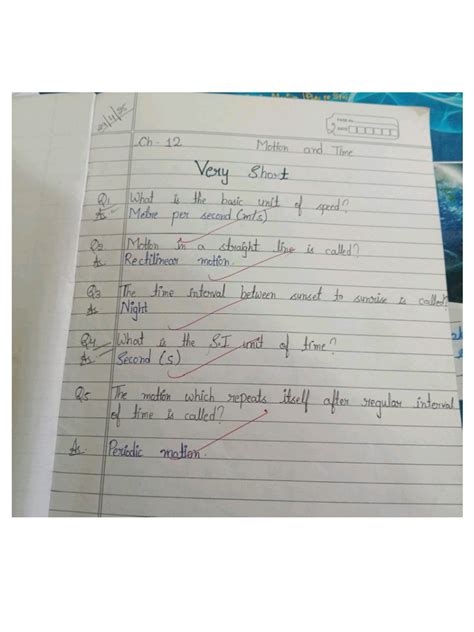 29/4/25
PAGE No.
DATE
Ch - 12 Motion and Time
Very Short
Q1 What is the basic unit of speed?
As Metre per second (m/s)
Q2 Motion in a straight line is called?
As Rectilinear motion.
Q3 The time interval between sunset to sunrise is called?
As Night
Q4 What is the S.I unit of time?
As Second (s)
Q5 The motion which repeats itself after regular interval
of time is called?
As Periodic motion.